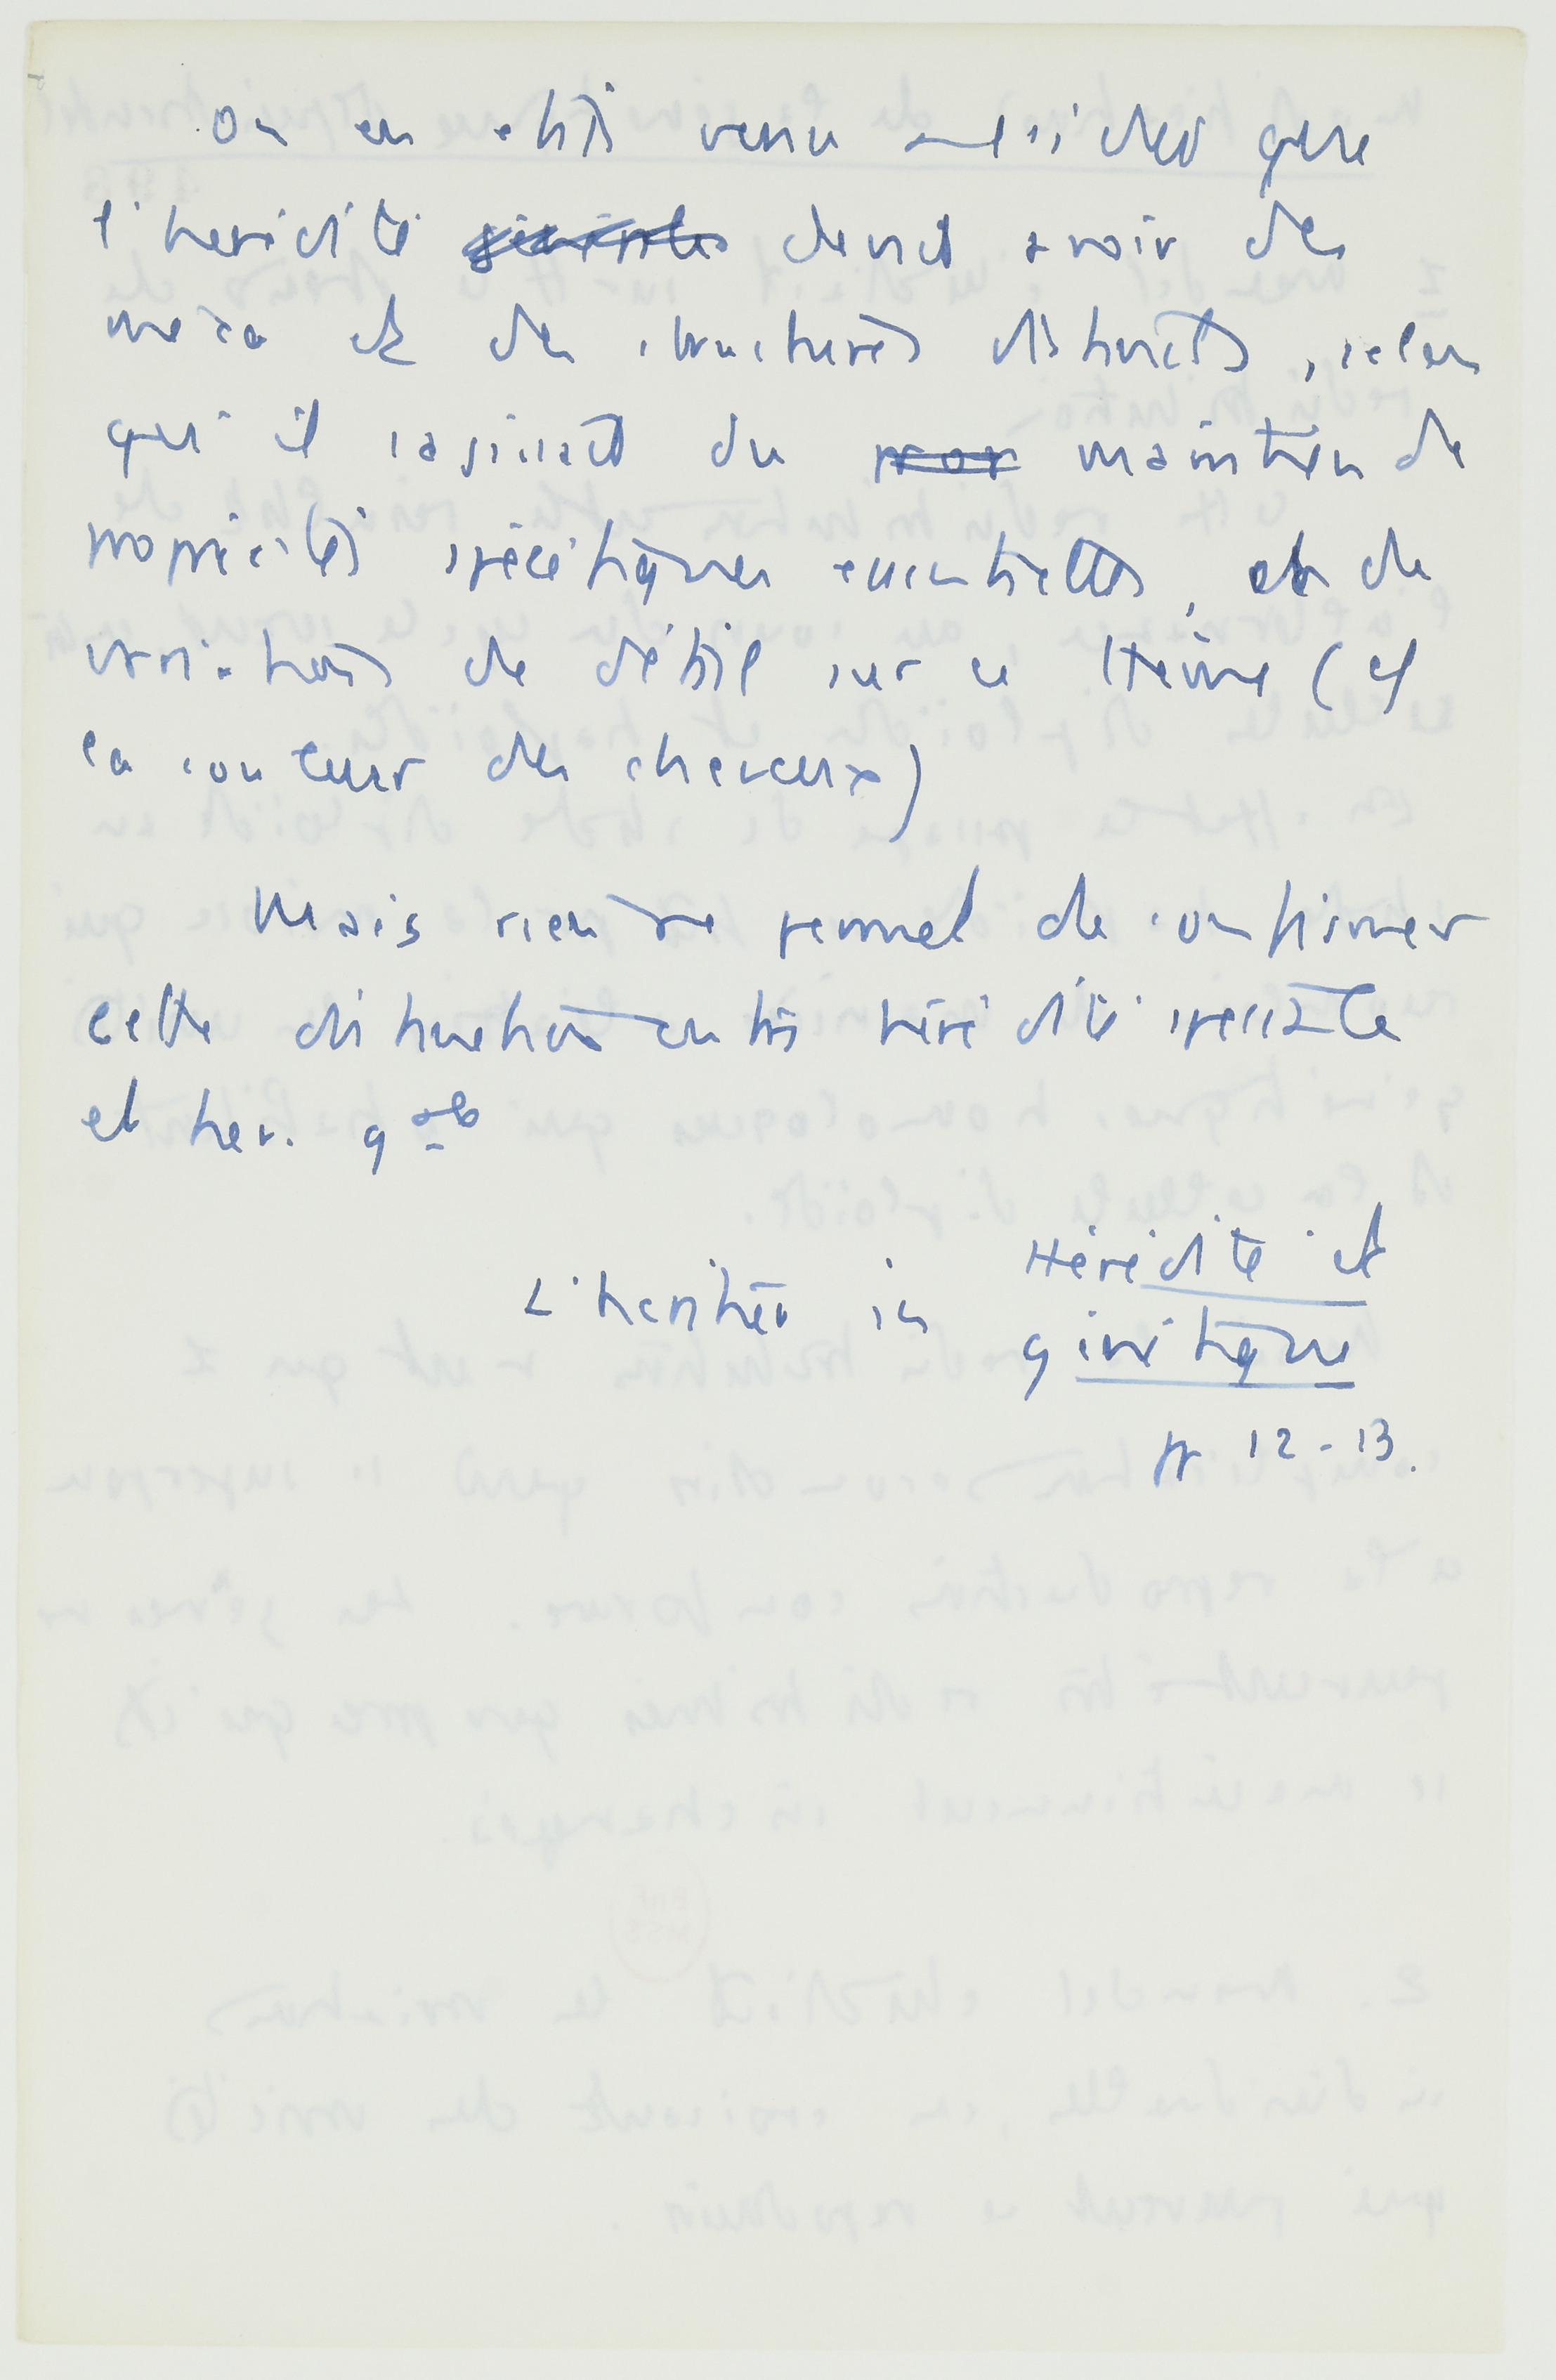 On en était venu à considérer que
l'hérédité générale devait avoir des
et des structures distinctes, selon
qu'il s'agissait du maintien de
propriétés spécifiques essentielles, et de
variations de détail sur ce thème (cf
la couleur des cheveux)
Mais rien ne permet de confirmer
cette distinction entre hérédité spéciale
et her. gale
L'héritier in Hérédité et
génétique
pp 12-13.